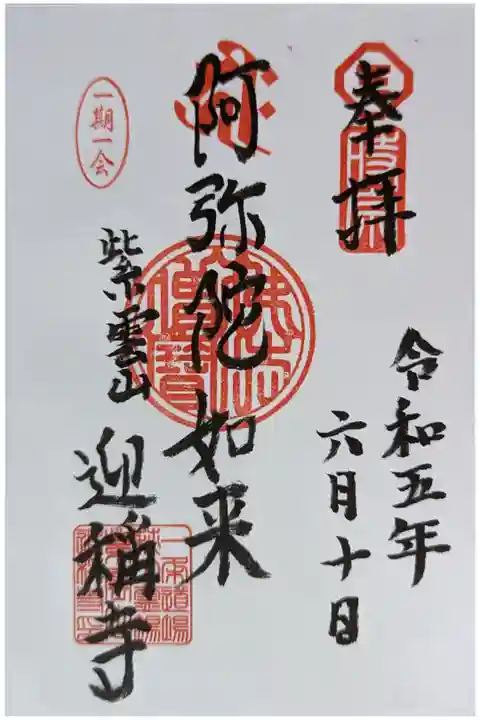 奉拝
令和五年
六月十日
阿弥陀如来
紫雲山
迎稱寺
一期一会